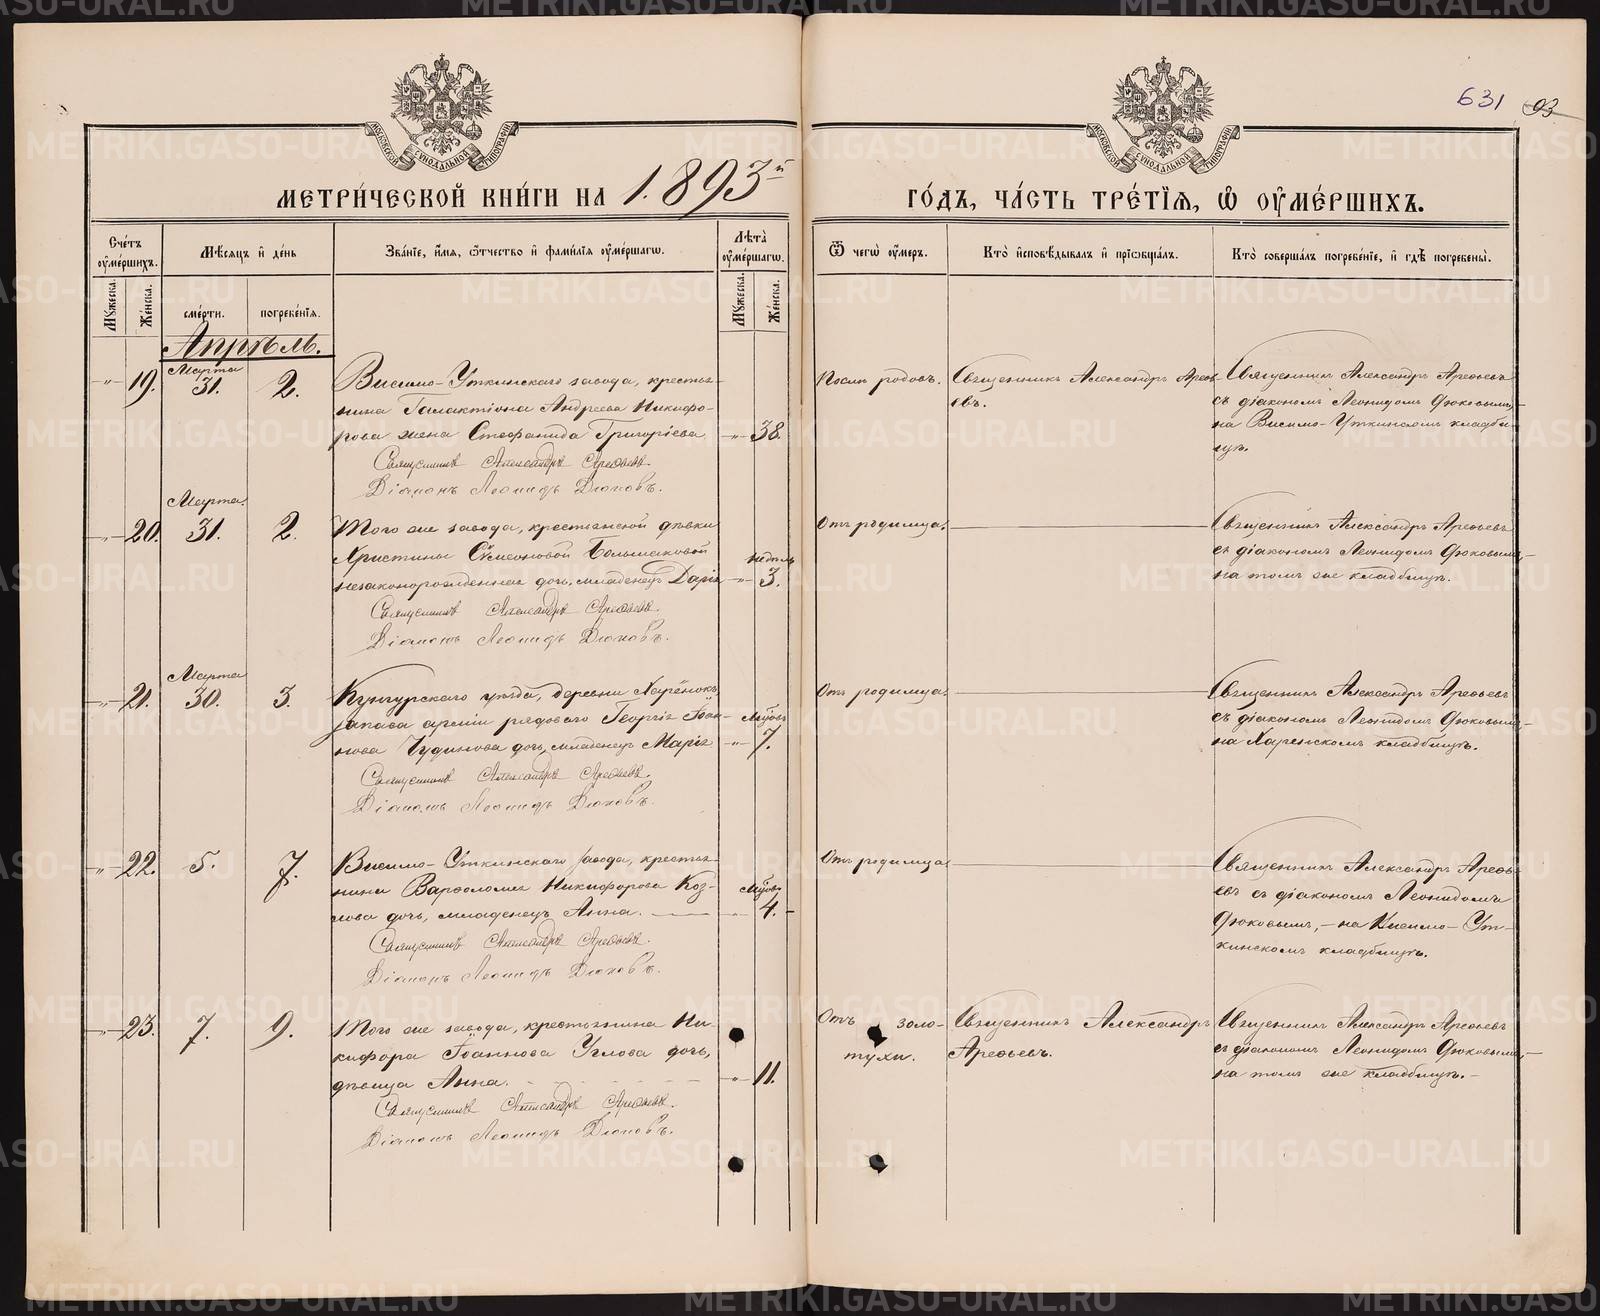 631 93
МЕТРИ́ЧЕСКОЙ КНИ́ГИ НА 1893й
ГО́ДЪ, ЧА́СТЬ ТРЕ́ТІЯ, Ѡ ОУМЕ́РШИХЪ.
Сче́тъ оуме́ршихъ.
Му́жеска.
Же́нска.
Мѣ́сяцъ и де́нь
сме́рти.
погребе́нія.
Зва́ніе, и́мя, ѻ҆́тчество и фами́лія оуме́ршагѡ.
Лѣта̀ оуме́ршагѡ.
Му́жеска.
Же́нска.
Ѿ чегѡ̀ оу́меръ.
Кто̀ исповѣ́дывалъ и прїѡбща́лъ.
Кто̀ соверша́лъ погребе́ніе, и гдѣ̀ погребены̀.
Апрѣль.
-"- 19.
Марта
31.
2.
Висимо-Уткинскаго завода, крестья-
нина Галактіона Андреева Никифо-
рова жена Стефанида Григоріева
-"- 38.
Священникъ Александръ Арефьевъ.
Діаконъ Леонидъ Дюковъ.
Послѣ родовъ.
Священникъ Александръ Арефь-
евъ.
Священникъ Александръ Арефьевъ
съ діакономъ Леонидомъ Дюковымъ,
на Висимо-Уткинскомъ кладби-
щѣ.
-"- 20.
Марта
31.
2.
Того же завода, крестьянской дѣвки
Христины Сѵмеоновой Большаковой
незаконорожденная дочь, младенецъ Дарія
недѣль
-"- 3.
Священникъ Александръ Арефьевъ.
Діаконъ Леонидъ Дюковъ.
Отъ родимца.
Священникъ Александръ Арефьевъ
съ діакономъ Леонидомъ Дюковымъ,
на томъ же кладбищѣ.
-"- 21.
Марта
30.
3.
Кунгурскаго уѣзда, деревни Харёнокъ,
запаса арміи рядоваго Георгія Іоан-
нова Чудинова дочь, младенецъ Марія
Мѣсяцъ
-"- 7.
Священникъ Александръ Арефьевъ.
Діаконъ Леонидъ Дюковъ.
Отъ родимца.
Священникъ Александръ Арефьевъ
съ діакономъ Леонидомъ Дюковымъ,
на Харенскомъ кладбищѣ.
-"- 22.
5.
7.
Висимо-Уткинскаго завода, крестья-
нина Варѳоломея Никифорова Коз-
лова дочь, младенецъ Анна.
Мѣсяцъ
-"- 4.
Священникъ Александръ Арефьевъ.
Діаконъ Леонидъ Дюковъ.
Отъ родимца.
Священникъ Александръ Арефь-
евъ съ діакономъ Леонидомъ
Дюковымъ, - на Висимо-Ут-
кинскомъ кладбищѣ.
-"- 23.
7.
9.
Того же завода, крестьянина Ни-
кифора Іоаннова Углова дочь,
дѣвица Анна.
-"- 11.
Священникъ Александръ Арефьевъ.
Діаконъ Леонидъ Дюковъ.
Отъ золо-
тухи.
Священникъ Александръ
Арефьевъ.
Священникъ Александръ Арефьевъ
съ діакономъ Леонидомъ Дюковымъ,
на томъ же кладбищѣ. -
METRIKI.GASO-URAL.RU